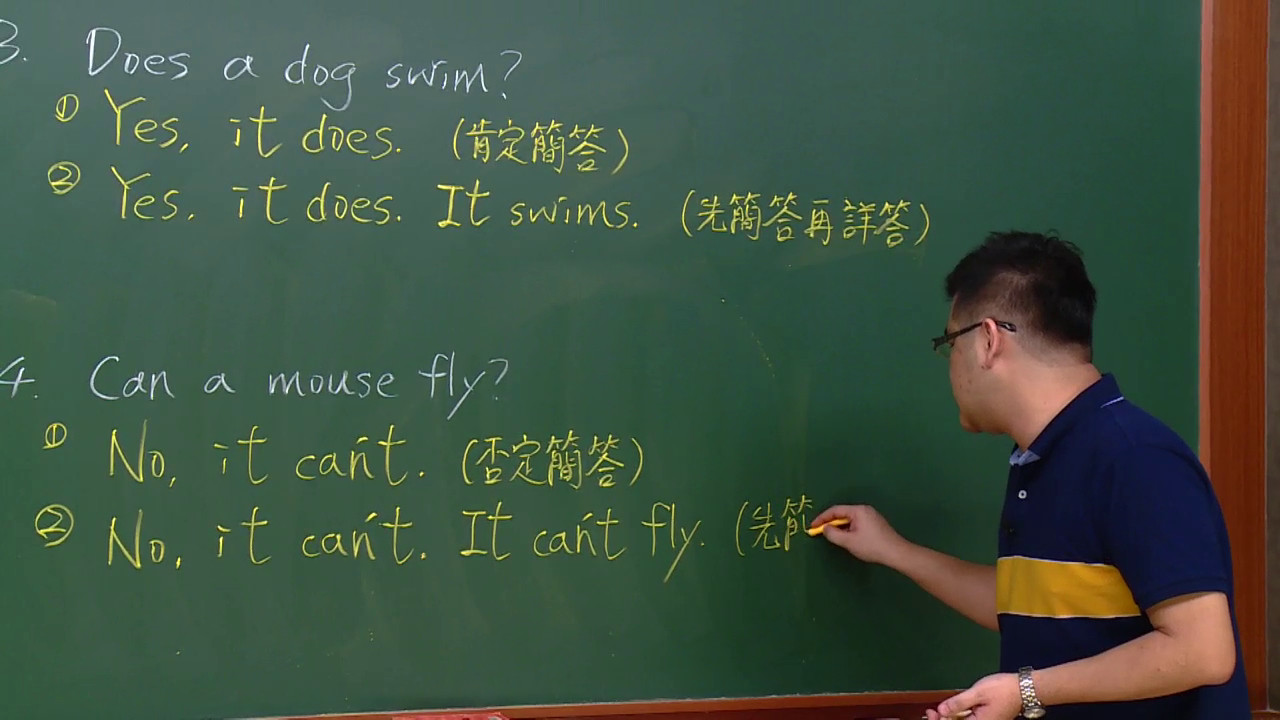 3. Does a dog swim?
① Yes, it does. (肯定簡答)
② Yes, it does. It swims. (先簡答再詳答)
4. Can a mouse fly?
① No, it can't. (否定簡答)
② No, it can't. It can't fly. (先